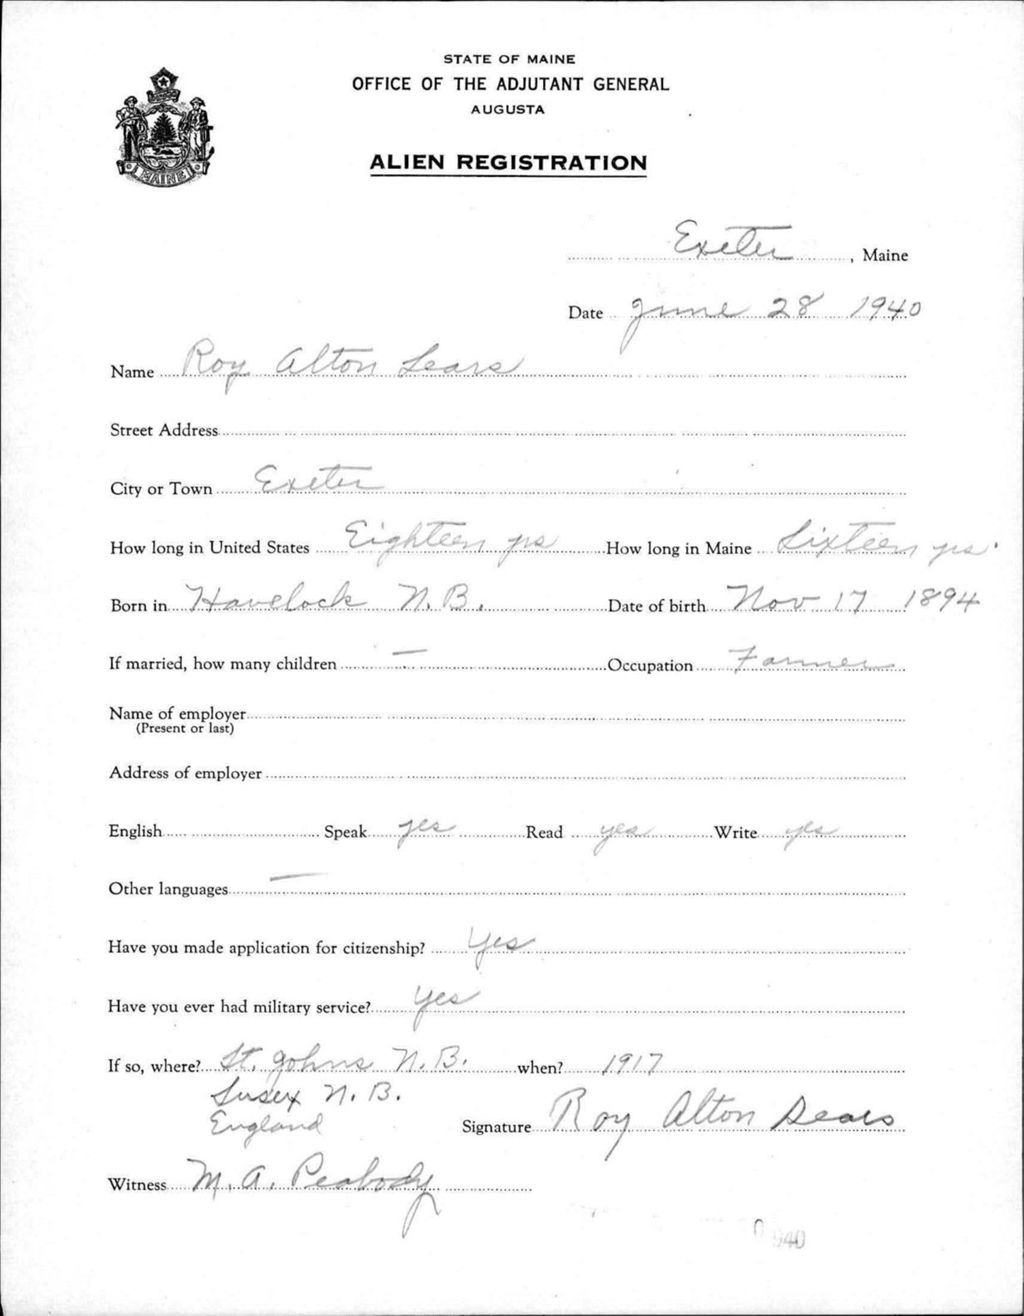 STATE OF MAINE
OFFICE OF THE ADJUTANT GENERAL
AUGUSTA
ALIEN REGISTRATION
MAINE
Exeter, Maine
Date June 28 1940
Name Roy Alton Sears
Street Address
City or Town Exeter
How long in United States Eighteen yrs How long in Maine Sixteen yrs.
Born in Havelock N.B. Date of birth Nov 17 1894
If married, how many children — Occupation Farmer
Name of employer
(Present or last)
Address of employer
English Speak yes Read yes Write yes
Other languages —
Have you made application for citizenship? Yes
Have you ever had military service? Yes
If so, where? St. Johns N.B. when? 1917
Susex N.B.
England
Signature Roy Alton Sears
Witness M. A. Peabody
940